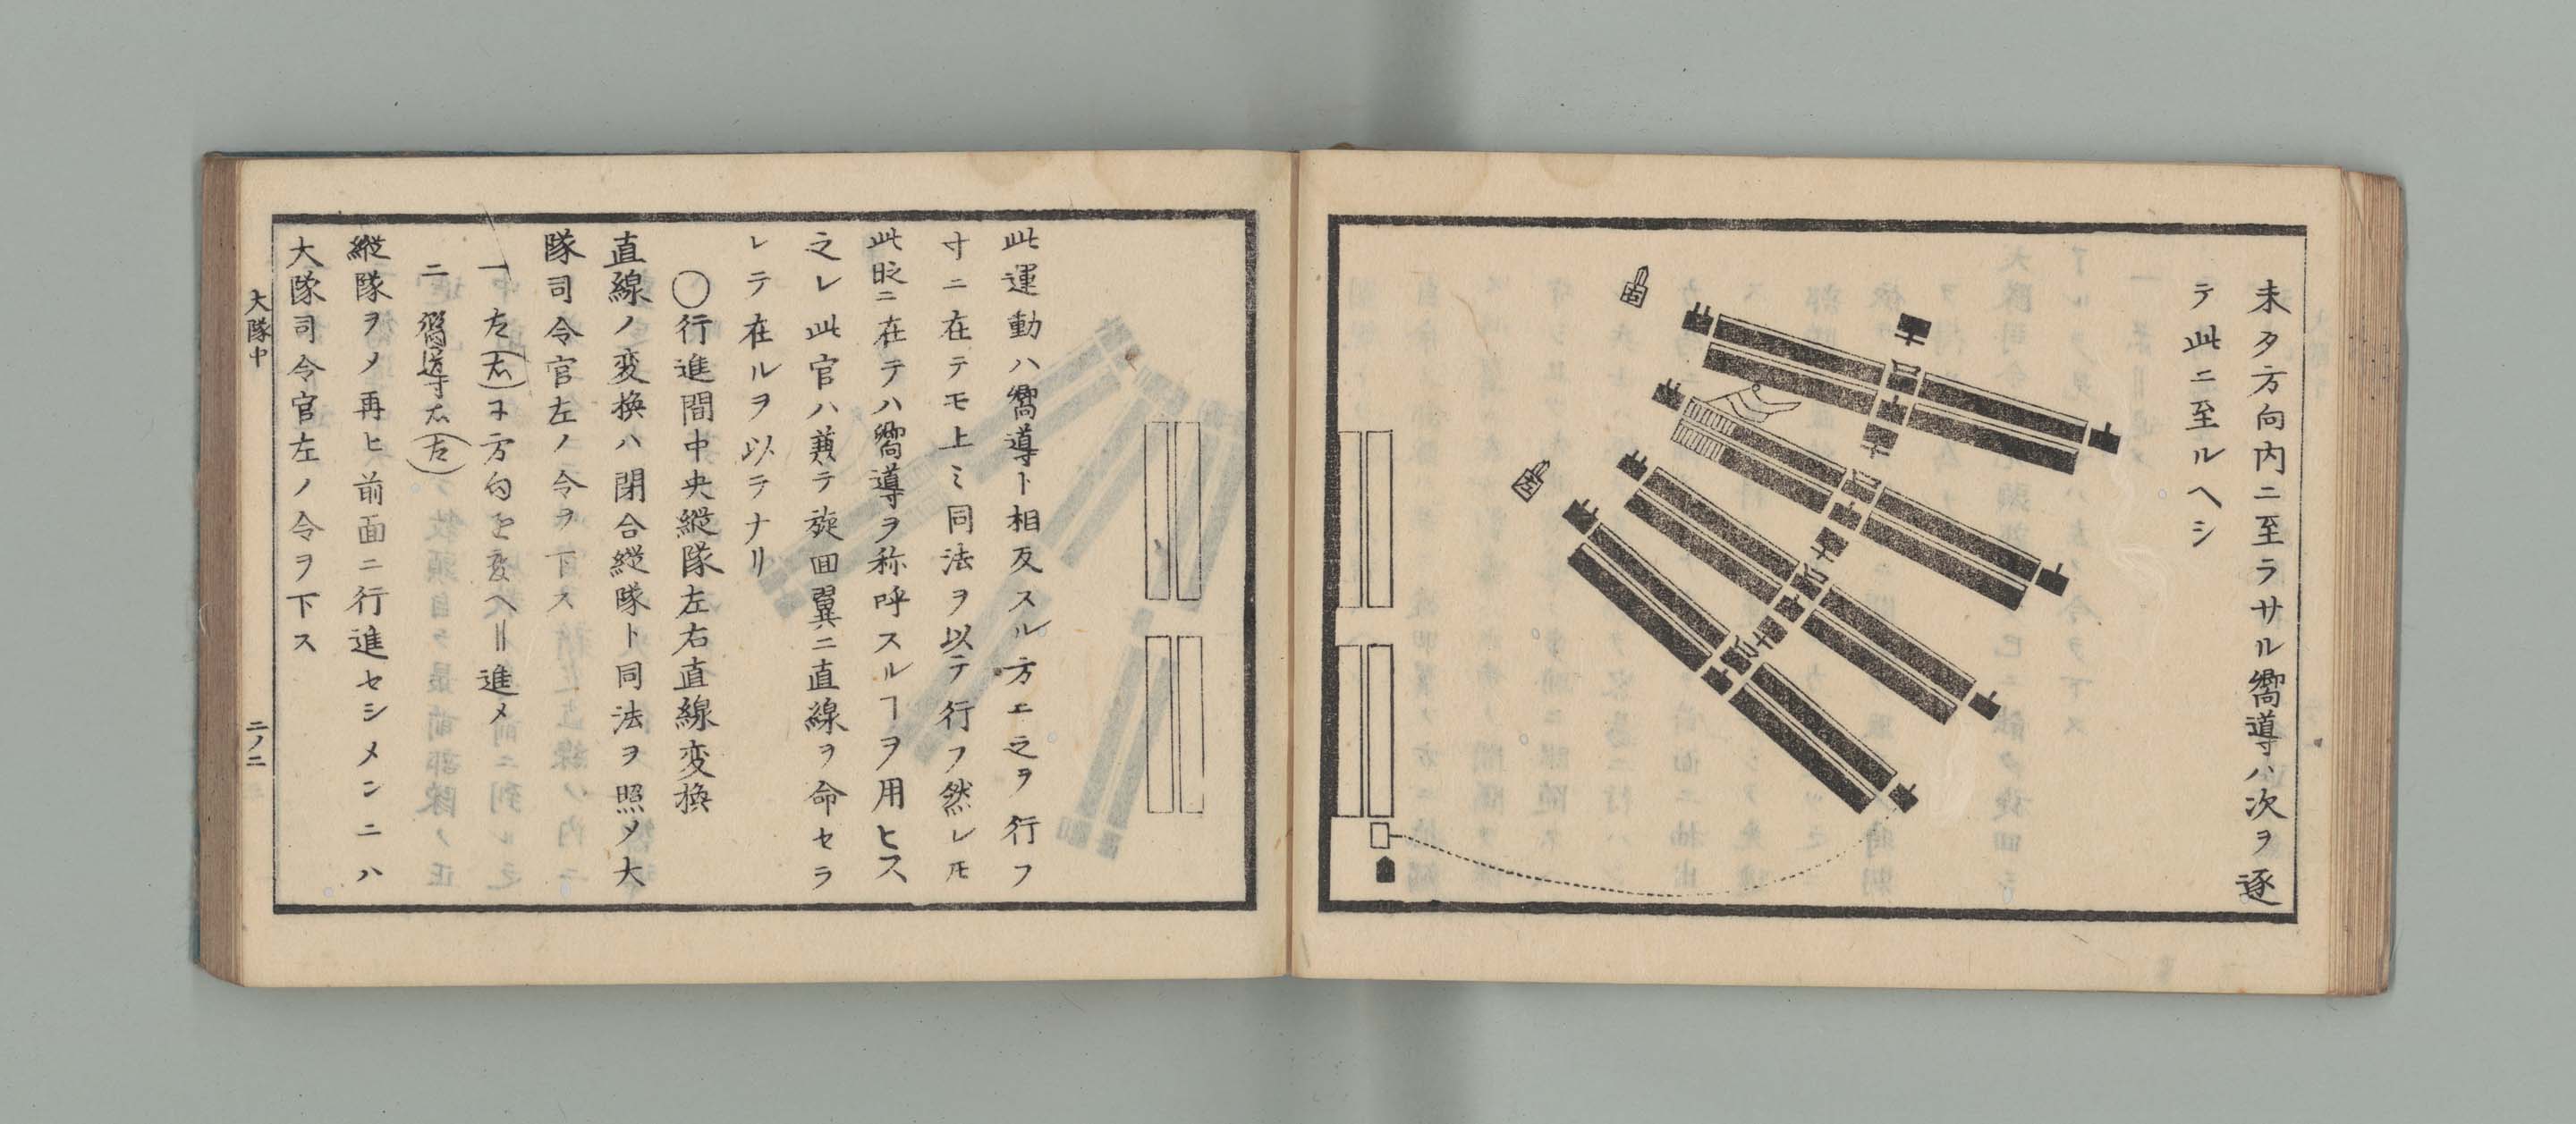 未タ方向内ニ至ラサル嚮導ハ次ヲ逐
テ此ニ至ルヘシ
此運動ハ嚮導ト相反スル方エ之ヲ行フ
寸ニ在テモ上ミ同法ヲ以テ行フ然レ𪜈
此眨ニ在テハ嚮導ヲ称呼スルヿヲ用ヒス
之レ此官ハ兼テ旋回翼ニ直線ヲ命セラ
レテ在ルヲ以テナリ
〇行進間中央縦隊左右直線変換
直線ノ変換ハ閉合縦隊ト同法ヲ照メ大
隊司令官左ノ令ヲ下ス
一 左(右)エ方向を変へ〢進メ
二 嚮導右(左)
縦隊ヲノ再ヒ前面ニ行進セシメンニハ
大隊司令官左ノ令ヲ下ス
大隊中
二ノ二